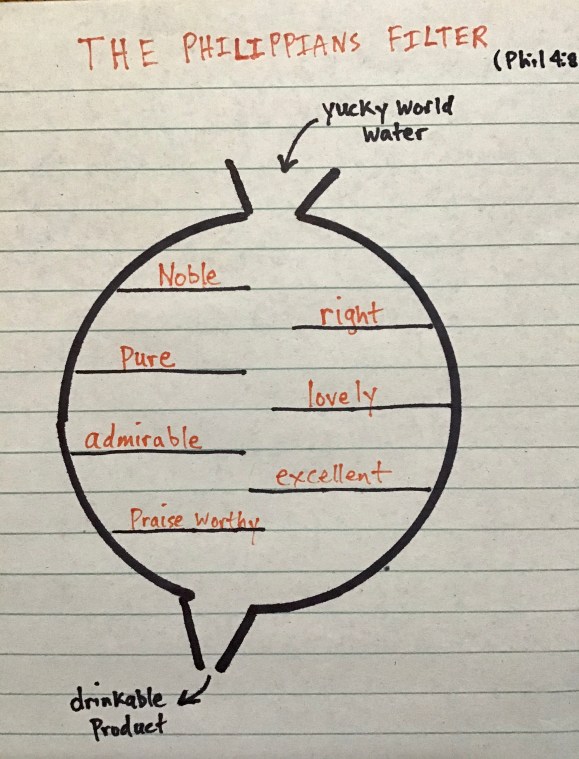 THE PHILIPPIANS FILTER
(Phil 4:8
yucky world
water
Noble
right
Pure
lovely
admirable
excellent
Praise worthy
drinkable
Product